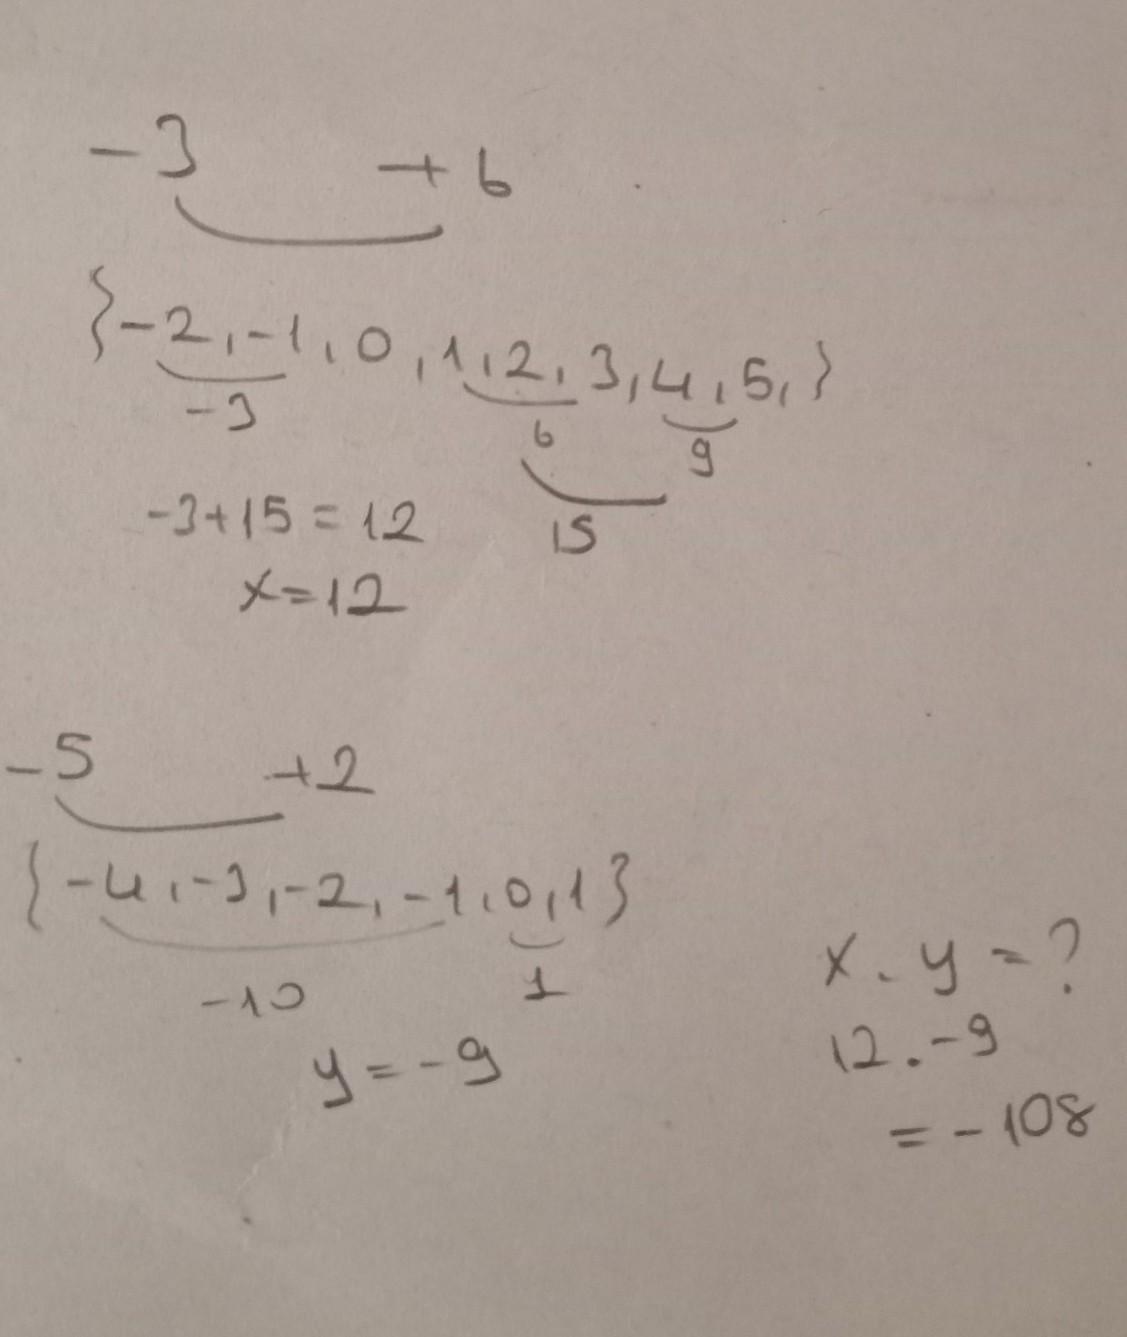 -3 +6
}-2,-1,0,1,2,3,4,5,}
-3 6 9
15
-3+15=12
x=12
-5 +2
{-4,-3,-2,-1,0,1}
-10 1
y=-9
x.y=?
12.-9
=-108